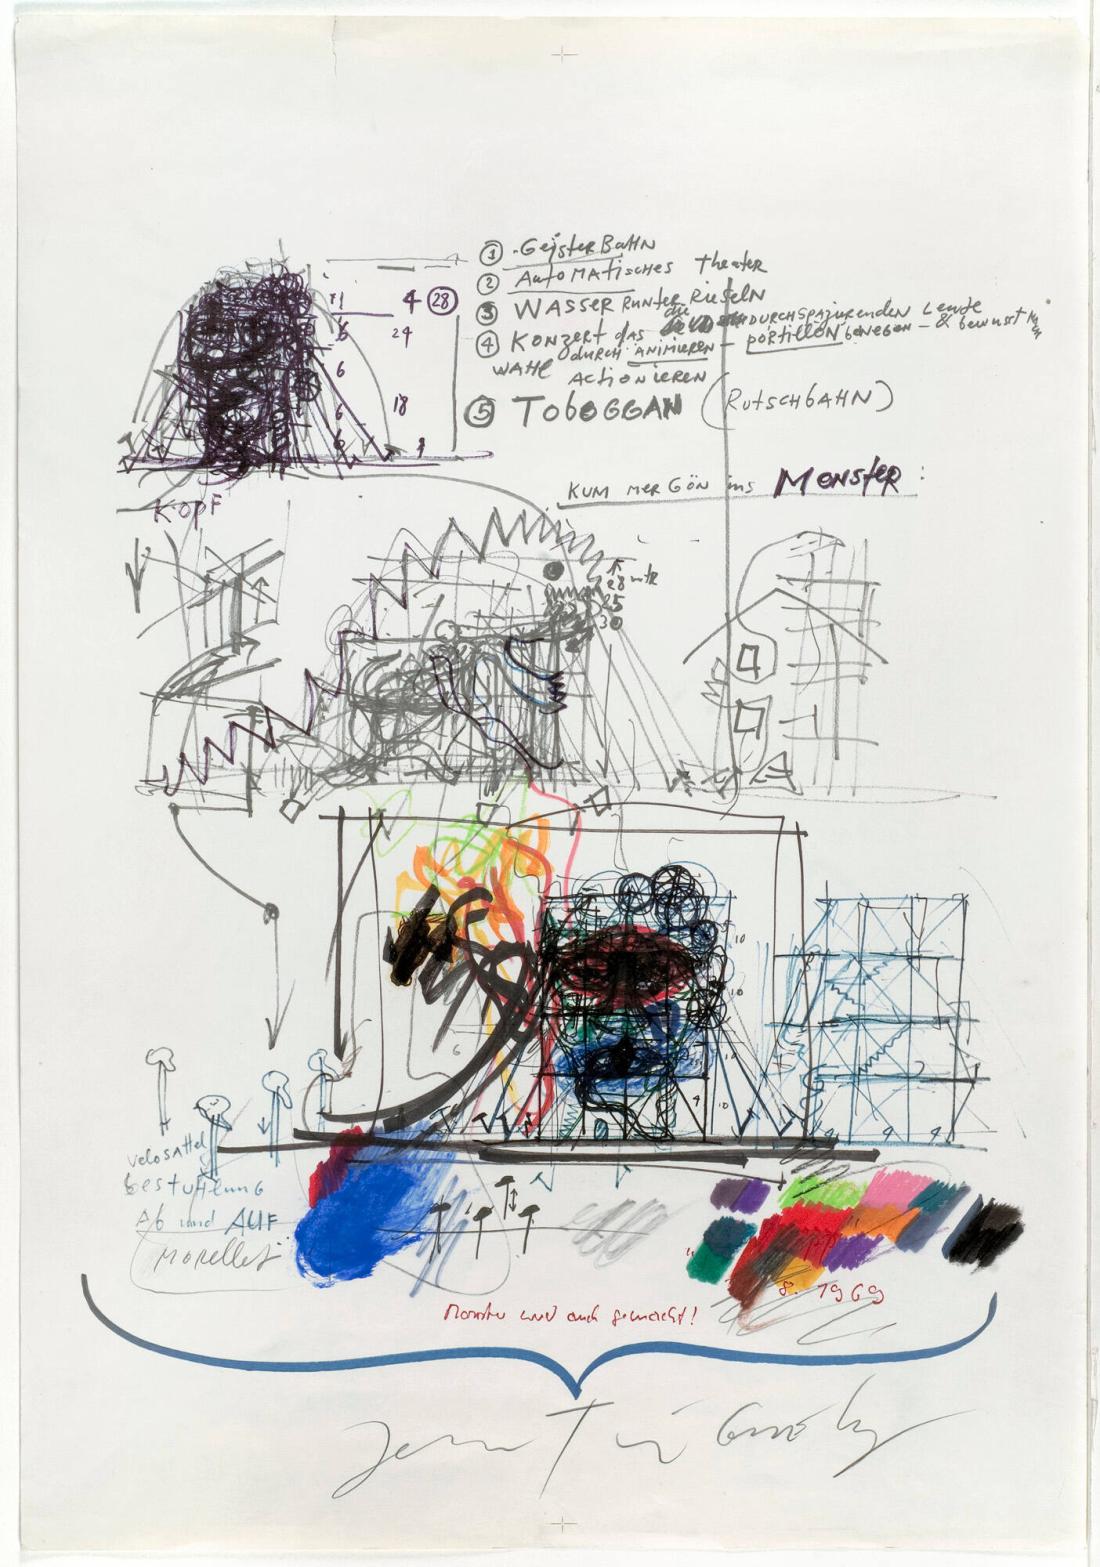 ① GeisterBahn
② AutoMatisches Theater
③ WASSER Runter RieSeln
④ Konzert das die DURCHSPAZIERENDEN Leute
durch ANIMIEREN - PORTILLON bewegen - & bewusst
WAHL ACTIONIEREN
⑤ TOBOGGAN (RutschBAHN)
4 ㉘
24
6
18
6
KUM MER GÖN ins MONSTER:
KOPF
28 mtr
25
30
10
10
6
4 10
4 4 4
velosattel
bestuhlung
Ab und AUF
Morellet
8. 1969
Monster wird auch gemacht!
Jean Tinguely